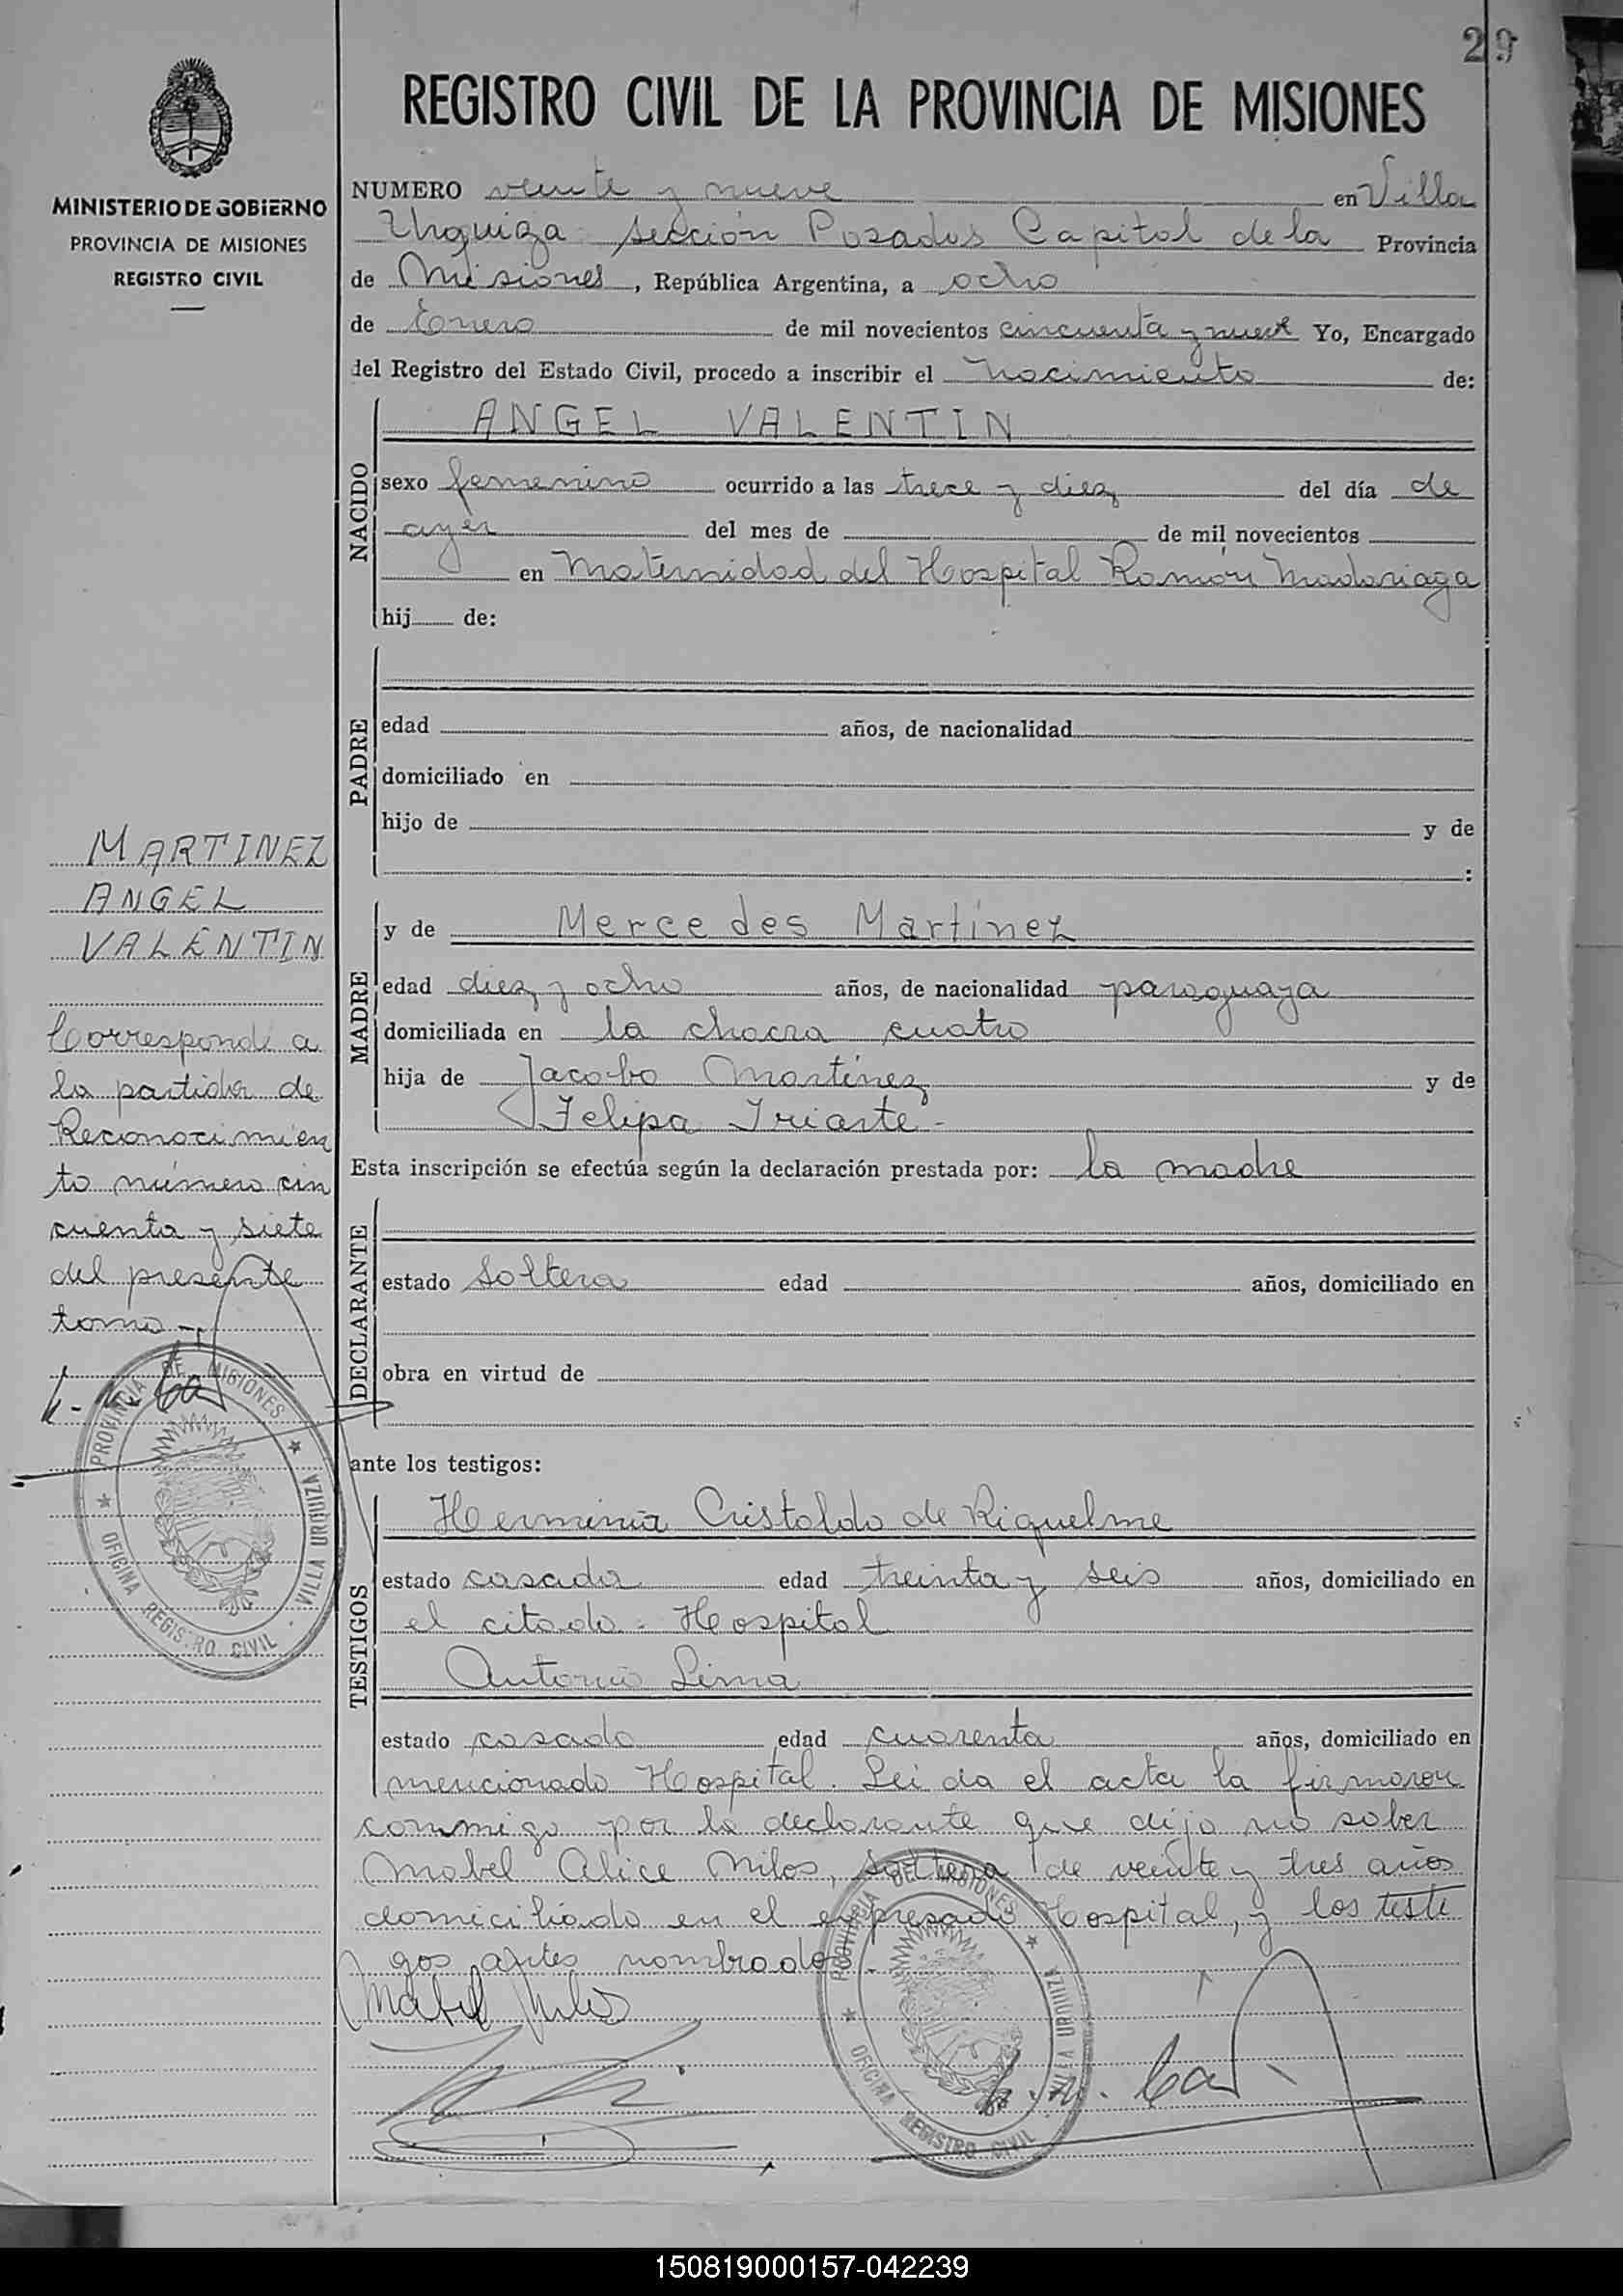 29
REGISTRO CIVIL DE LA PROVINCIA DE MISIONES
MINISTERIO DE GOBIERNO
PROVINCIA DE MISIONES
REGISTRO CIVIL
NUMERO veinte y nueve en Villa
Urquiza sección Posadas Capital de la Provincia
de Misiones, República Argentina, a ocho
de Enero de mil novecientos cincuenta y nueve Yo, Encargado
del Registro del Estado Civil, procedo a inscribir el nacimiento de:
NACIDO
ANGEL VALENTIN
sexo femenino ocurrido a las trece y diez del día de
ayer del mes de de mil novecientos
en Maternidad del Hospital Ramón Madariaga
hij de:
PADRE
edad años, de nacionalidad
domiciliado en
hijo de y de
:
MARTINEZ
ANGEL
VALENTIN
MADRE
y de Mercedes Martínez
edad diez y ocho años, de nacionalidad paraguaya
domiciliada en la chacra cuatro
hija de Jacobo Martínez y de
Felipa Iriarte -
Corresponde a
la partida de
Reconocimien
to número cin
cuenta y siete
del presente
tomo -
Esta inscripción se efectúa según la declaración prestada por: la madre
DECLARANTE
estado Soltera edad años, domiciliado en
obra en virtud de
PROVINCIA DE MISIONES
OFICINA REGISTRO CIVIL - VILLA URQUIZA
ante los testigos:
TESTIGOS
Herminia Cristaldo de Riquelme
estado casada edad treinta y seis años, domiciliado en
el citado Hospital
Antonio Lima
estado casado edad cuarenta años, domiciliado en
mencionado Hospital. Leida el acta la firmaron
conmigo por la declarante que dijo no saber
Mabel Alice Milos, soltera de veinte y tres años
domiciliada en el expresado Hospital, y los testi
gos antes nombrado
Mabel Milos
PROVINCIA DE MISIONES
OFICINA REGISTRO CIVIL VILLA URQUIZA
150819000157-042239